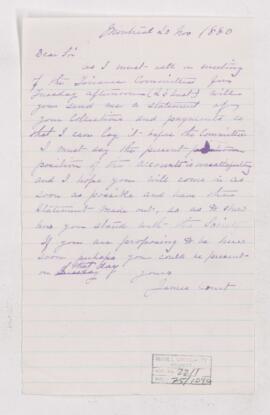 Montreal 20 Nov 1880
Dear Sir
as I must call a meeting
of the Finance Committee for
Tuesday afternoon (25 Inst) will
you send me a statement of
your Collections and payments so
that I can lay it before the Committee
I must say the present
position of the Accounts is unsatisfactory
and I hope you will come in as
soon as possible and have the
Statement made out, so as to shew
how you stand with the Society
If you are proposing to be here
soon perhaps you could be present
on that day
Yours
James Court